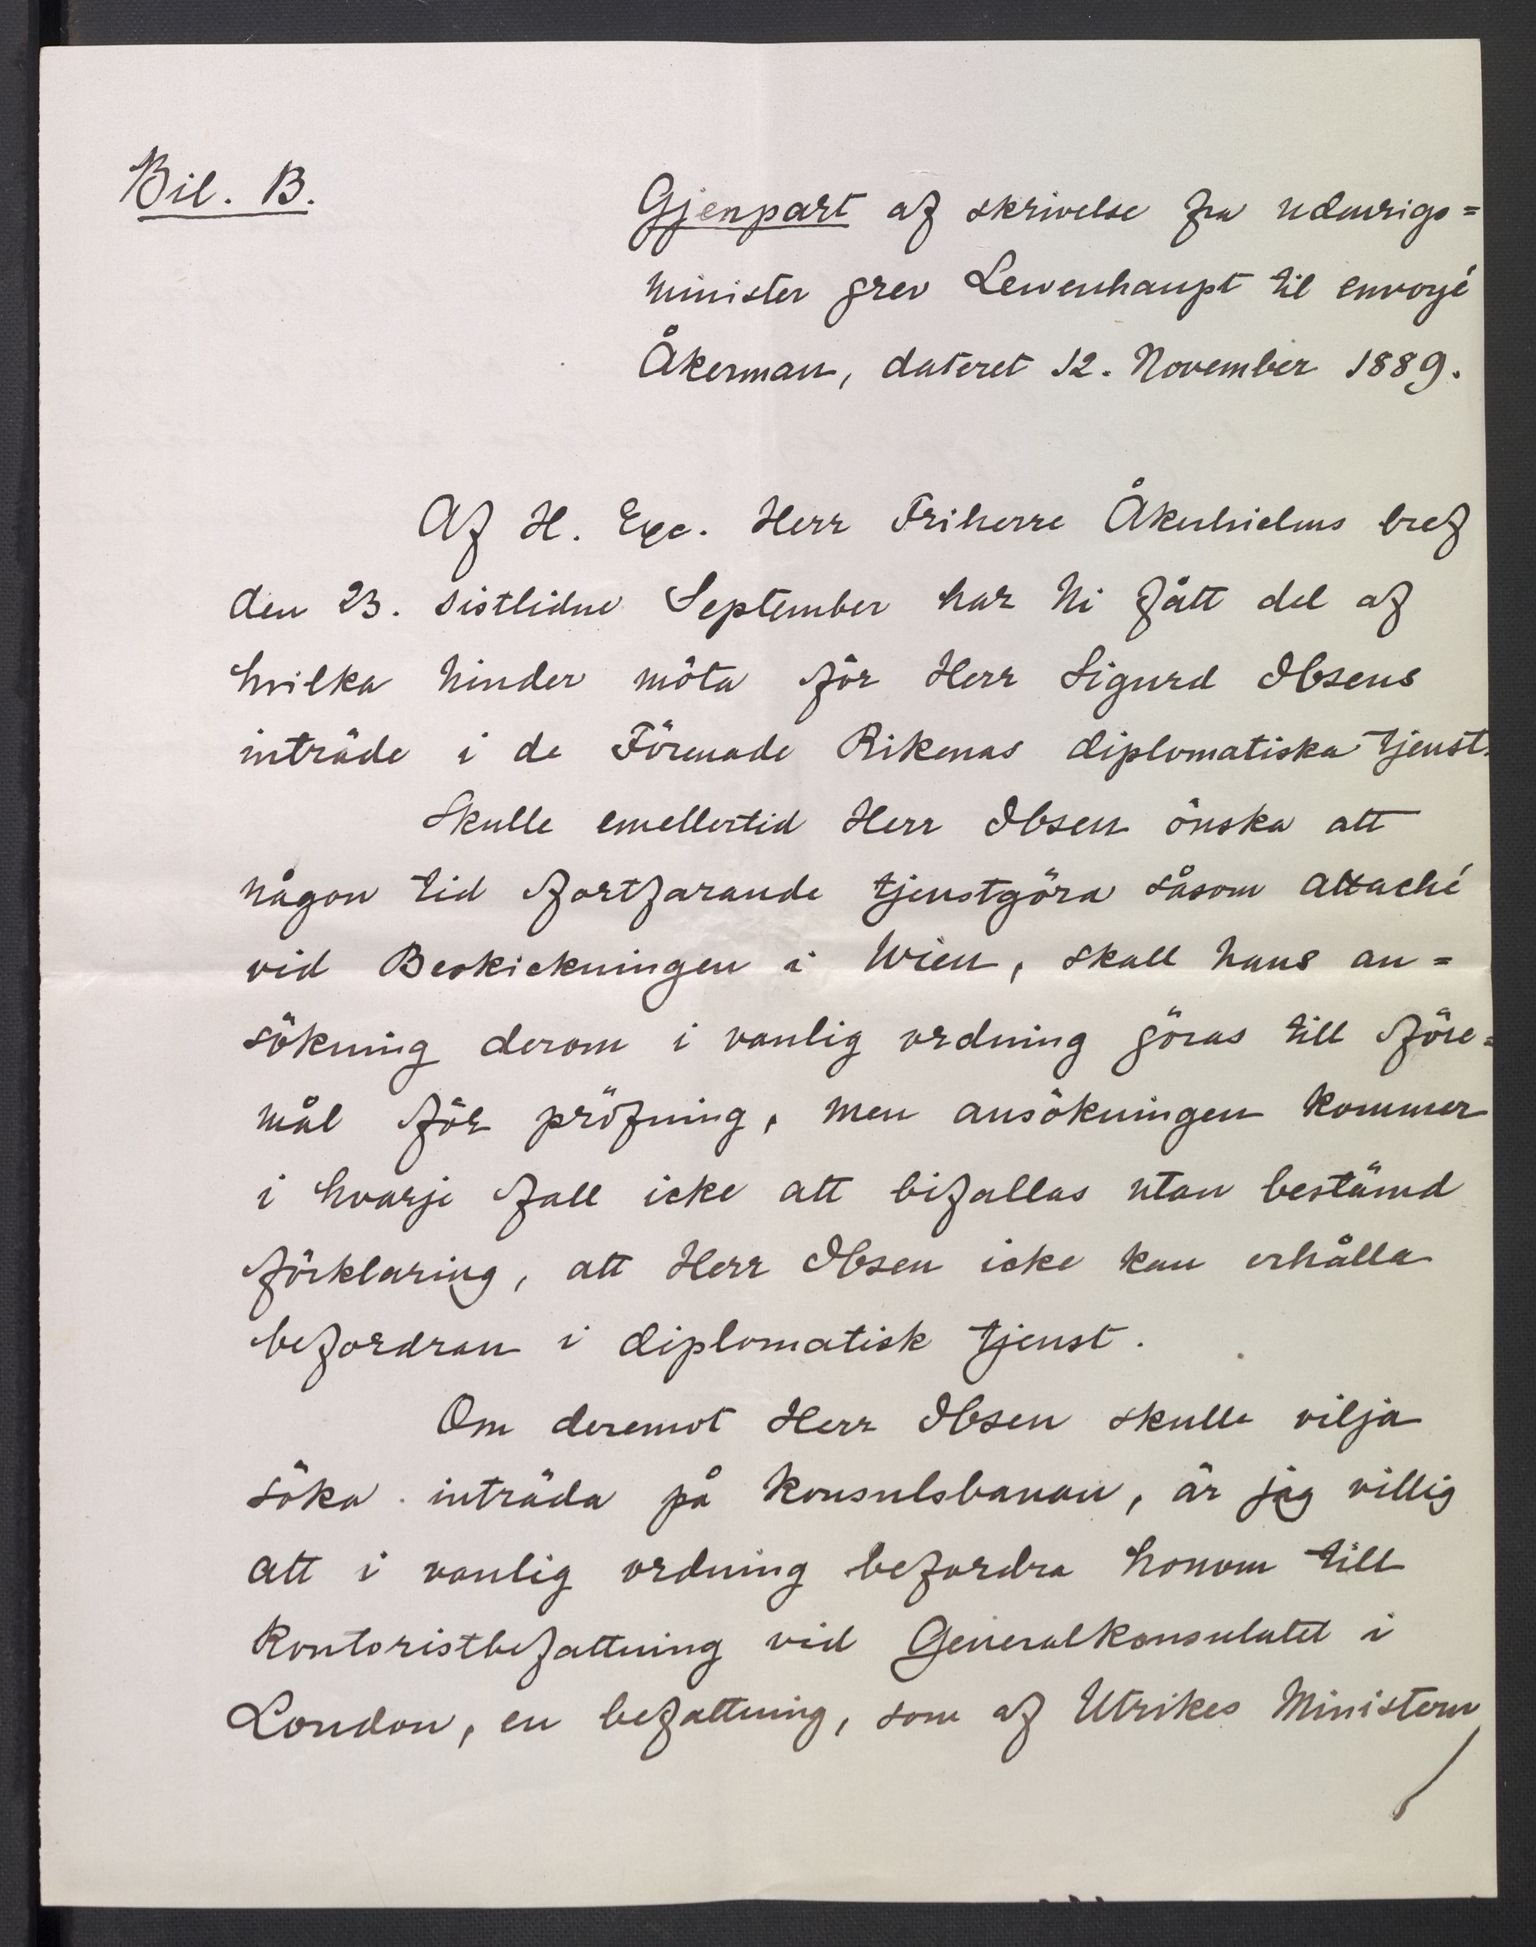 Bil. B.
Gjenpart af skrivelse fra udenrigs=
minister grev Lewenhaupt til envoyé
Åkerman, dateret 12. November 1889.
Af H. Exc. Herr Friherre Åkerhielms bref
den 23. sistlidne September har Ni fått del af
hvilka hinder möta för Herr Sigurd Ibsens
inträde i de Förenade Rikenas diplomatiska tjenst.
Skulle emellertid Herr Ibsen önska att
någon tid fortfarande tjenstgöra såsom attaché
vid Beskickningen i Wien, skall hans an=
sökning derom i vanlig ordning göras till före=
mål för pröfning, men ansökningen kommer
i hvarje fall icke att bifallas utan bestämd
förklaring, att Herr Ibsen icke kan erhålla
befordran i diplomatisk tjenst.
Om deremot Herr Ibsen skulle vilja
söka inträda på konsulsbanan, är jag villig
att i vanlig ordning befordra honom till
kontoristbefattning vid Generalkonsulatet i
London, en befattning, som af Utrikes Ministern